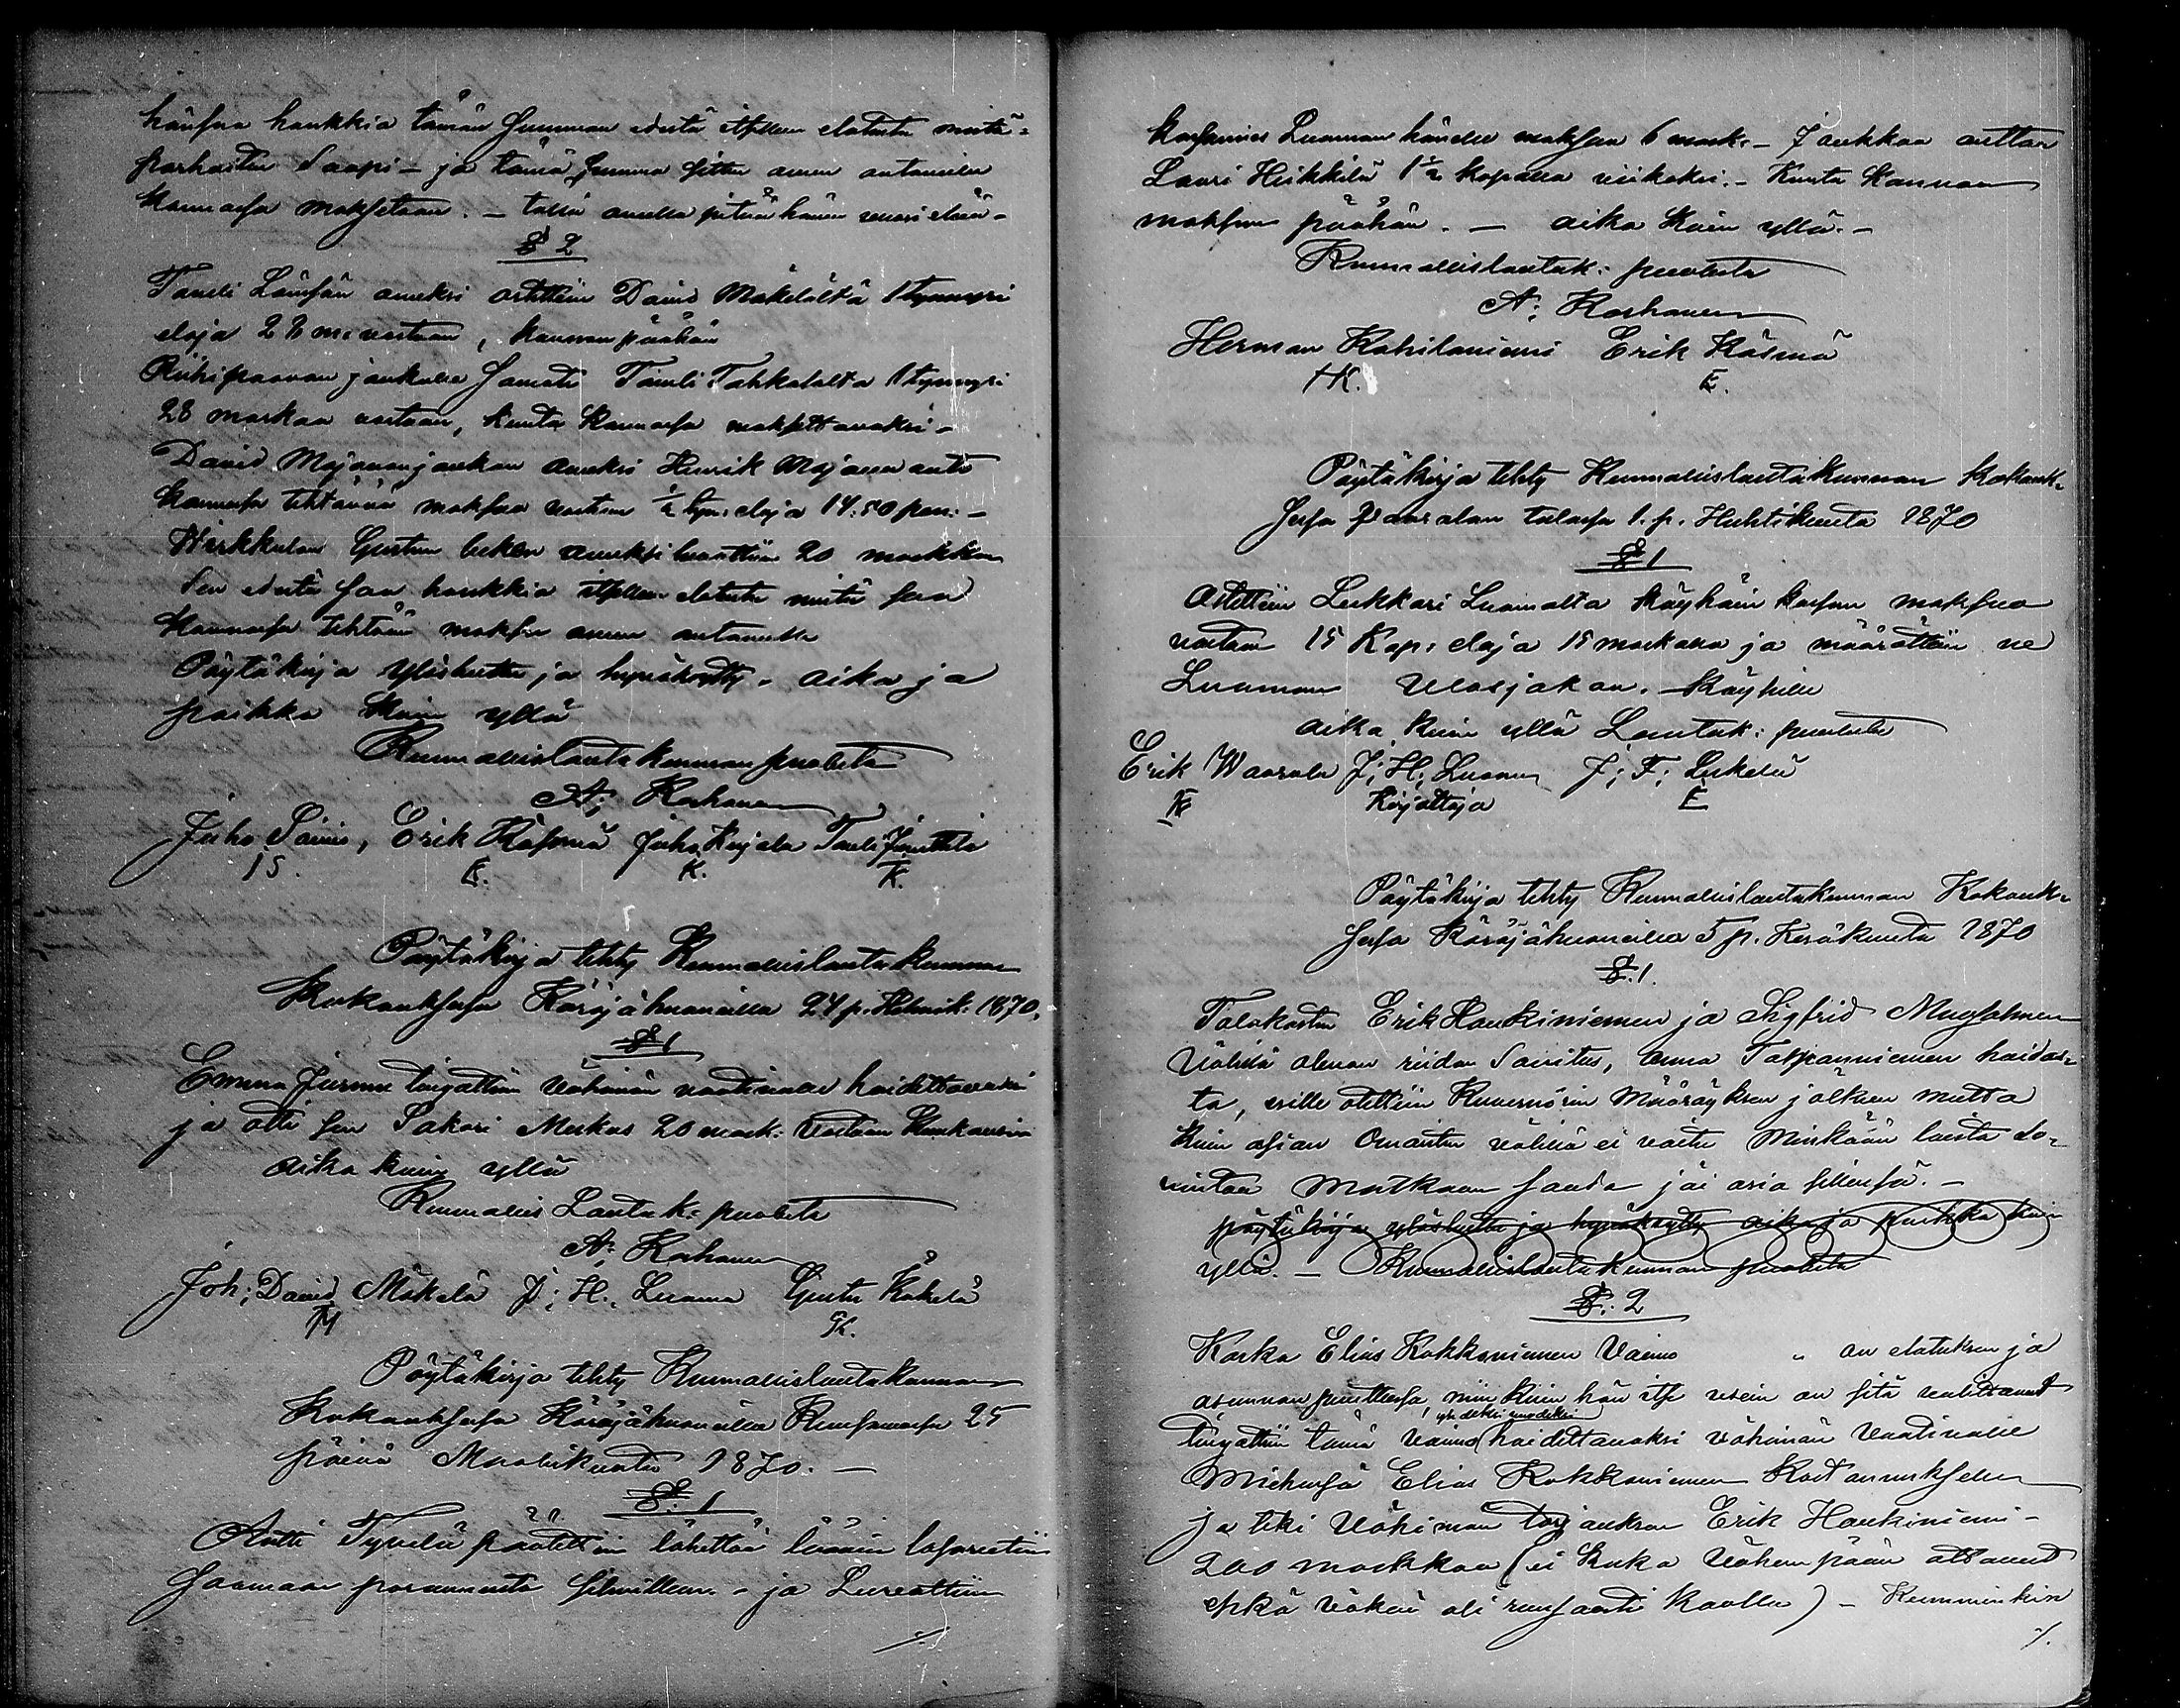 hänsaa hankkia tämän summan edestä itsellen elatusta mistä-
parhaiten saapi – ja tämä summa sitten aunan antamisen
kannossa maksetaan. – tällä avulla pitää hänen vuosi elää –
§ 2
Taneli Länsän avuksi ostettiin David Mäkelältä 1 tynnyri
eloja 28 m: vastaan, kannon päähän
Riihipaavan joukolle samati Taneli Tahkolalta 1 tynnyri
28 markkaa vastaan, kunta kannossa maksettavaksi –
David Majavan joukon avuksi Henrik Majava anto
kannossa tehtävää maksua vastaan ½ tyn: eloja 14:50 pen: –
Wirkkulan Gustun lesken avuksi luvattiin 20 markkaa
sen edestä saa hankkia itsellen elatusta mistä saa
kannossa tehtävän maksun avun antanelle
Pöytäkirja ylösluettu ja hyväksytty. aika ja
paikka kuin yllä
Kunnallislautakunnan puolesta
A; Korhonen
Juho Säinö, Erik Käsmä Juho Kirjala Taneli Junttila
IS. E. K. K.
Pöytäkirja tehty Kunnallislautakunnan
Kokouksesa Käräjähuoneella 24 p. Helmik: 1870.
§ 1
Emma Jurmu tingattiin vähimän vaativalle hoidettavaksi
ja otti sen Sakari Moikas 20 mark: vastaan
aika kuin yllä
Kunnallis Lautak: puolesta
A; Korhonen
Joh; David Mäkelä J; H; Luoma Gustu Käkelä
M GK.
Pöytäkirja tehty Kunnallislautakunnan
Kokouksesa Käräjähuoneella 25
päivä Maaliskuuta 1870. –
§: 1
Antti Tyvelä päätettiin lähettää läänin lasarettiin
saamaan parannusta silmillensä – ja
./.
Luoman hänelle maksaa 6 mark: – joukkoa auttaa
Lauri Heikkilä 1½ kapalla viikoksi. – Kunta kannon
maksun päähän. – aika kuin yllä. –
Kunnallislautak: puolesta
A; Korhonen
Herman Kahilaniemi Erik Käsmä
HK. E.
Pöytäkirja tehty Kunnallislautakunnan Kokouk-
sesa Waaralan talossa 1. p. Huhtikuuta 1870
§ 1
Ostettiin Lukkari Luomalta köyhäin kassan maksua
vastaan 15 Kap: eloja 15 markalla ja määrättiin ne
Luoman ulosjakaa. – köyhille
aika kuin yllä Lautak: puolesta
Erik Waarala J; H; Luoma J; F; Leskelä
K Kirjottaja E
Pöytäkirja tehty Kunnallislautakunnan Kokouk-
sesa Käräjähuoneella 5 p. Kesäkuuta 1870
§. 1.
Talokasten Erik Haukiniemen ja Sigfrid
välillä olevan riidan Anna Tappaniemen hoidos-
ta, esille otettiin Kuvernörin määräyksen jälkeen mutta
kuin asian omaisten välillä ei voitu minkään laista so-
vintoa matkaan saada jäi asia sillensä. –
pöytäkirja ylösluettu ja hyväksytty aika ja paikka kuin
yllä. – Kunnallislautakunnan puolesta
§: 2
Koska Elias Kokkoniemen Vaimo „ on elatuksen ja
asunnon puutteessa, niin kuin hän itse usein on sitä valittanut
yhdeksi vuodeksi
tingattiin tämä vaimo hoidettavaksi vähimän vaativalle
Miehensä Elias Kokkoniemen kustannuksella
ja teki vähimän tarjouksen Erik Haukiniemi –
200 markkaa (ei kuka vähempään ottanut
ehkä väkeä oli runsaasti koolla) – Kumminkin
./.